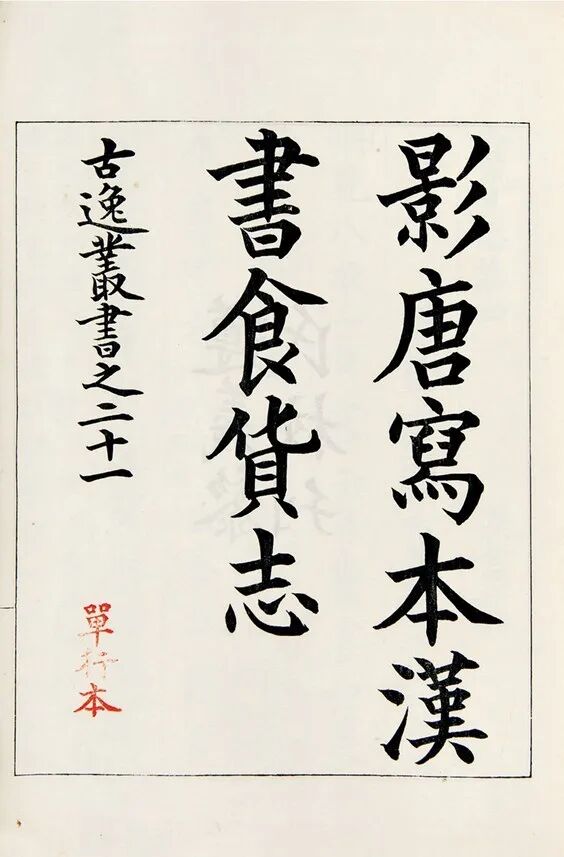 影唐寫本漢
書食貨志
古逸叢書之二十一
單行本